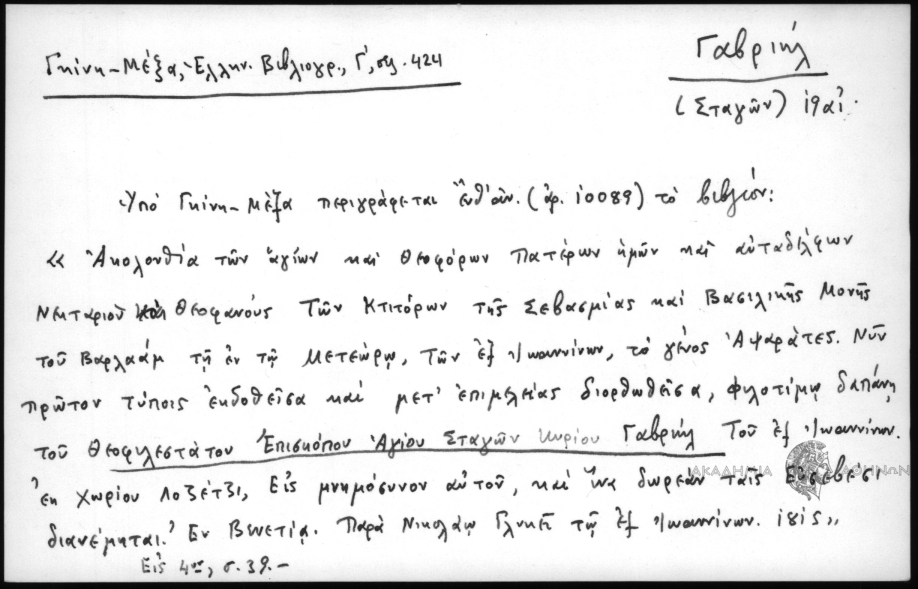 Γκίνη-Μέξα, Ἑλλην. Βιβλιογρ., Γ', σελ. 424
Γαβριήλ
(Σταγῶν) ιθαʹ.
Ὑπὸ Γκίνη-Μέξα περιγράφεται (ἀρ. 10089) τὸ βιβλίον:
«Ἀκολουθία τῶν ἁγίων καὶ Θεοφόρων Πατέρων ἡμῶν καὶ αὐταδέλφων
Νεκταρίου καὶ Θεοφανοῦς Τῶν Κτιτόρων τῆς Σεβασμίας καὶ Βασιλικῆς Μονῆς
τοῦ Βαρλαάμ τῇ ἐν τῇ Μετεώρῳ, τῶν ἐξ Ἰωαννίνων, τὸ γένος Ἀψαράτες. Νῦν
πρῶτον τύποις ἐκδοθεῖσα καὶ μετ' ἐπιμελείας διορθωθεῖσα, φιλοτίμῳ δαπάνῃ
τοῦ Θεοφιλεστάτου Ἐπισκόπου Ἁγίου Σταγῶν Κυρίου Γαβριήλ Τοῦ ἐξ Ἰωαννίνων.
ἐκ χωρίου Λοζέτζι, Εἰς μνημόσυνον αὐτοῦ, καὶ ἵνα δωρεὰν ταῖς Εὐσεβέσι
διανέμηται. Ἐν Βενετίᾳ. Παρὰ Νικολάῳ Γλυκεῖ τῷ ἐξ Ἰωαννίνων. 1815»
Εἰς 4ον, σ. 39.-
ΑΚΑΔΗΜΙΑ ΑΘΗΝΩΝ